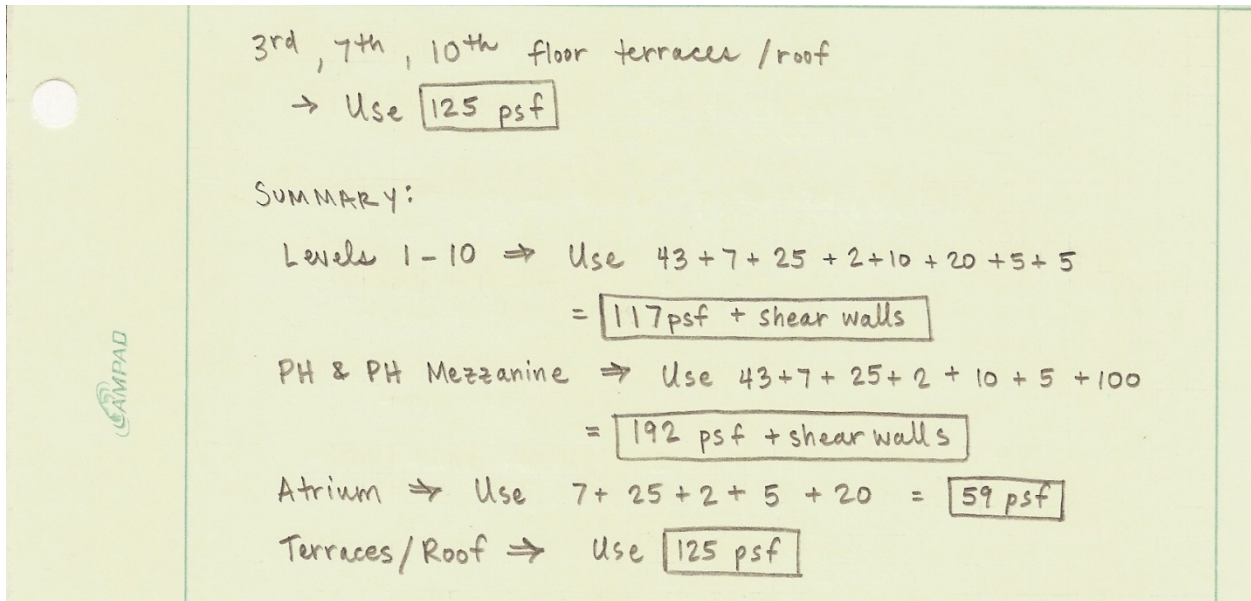 3rd, 7th, 10th floor terraces/roof
→ Use 125 psf
SUMMARY:
Levels 1-10 ⇒ Use 43+7+25+2+10+20+5+5
= 117psf + shear walls
PH & PH Mezzanine ⇒ Use 43+7+25+2+10+5+100
= 192 psf + shear walls
Atrium ⇒ Use 7+25+2+5+20 = 59 psf
Terraces/Roof ⇒ Use 125 psf
AMPAD